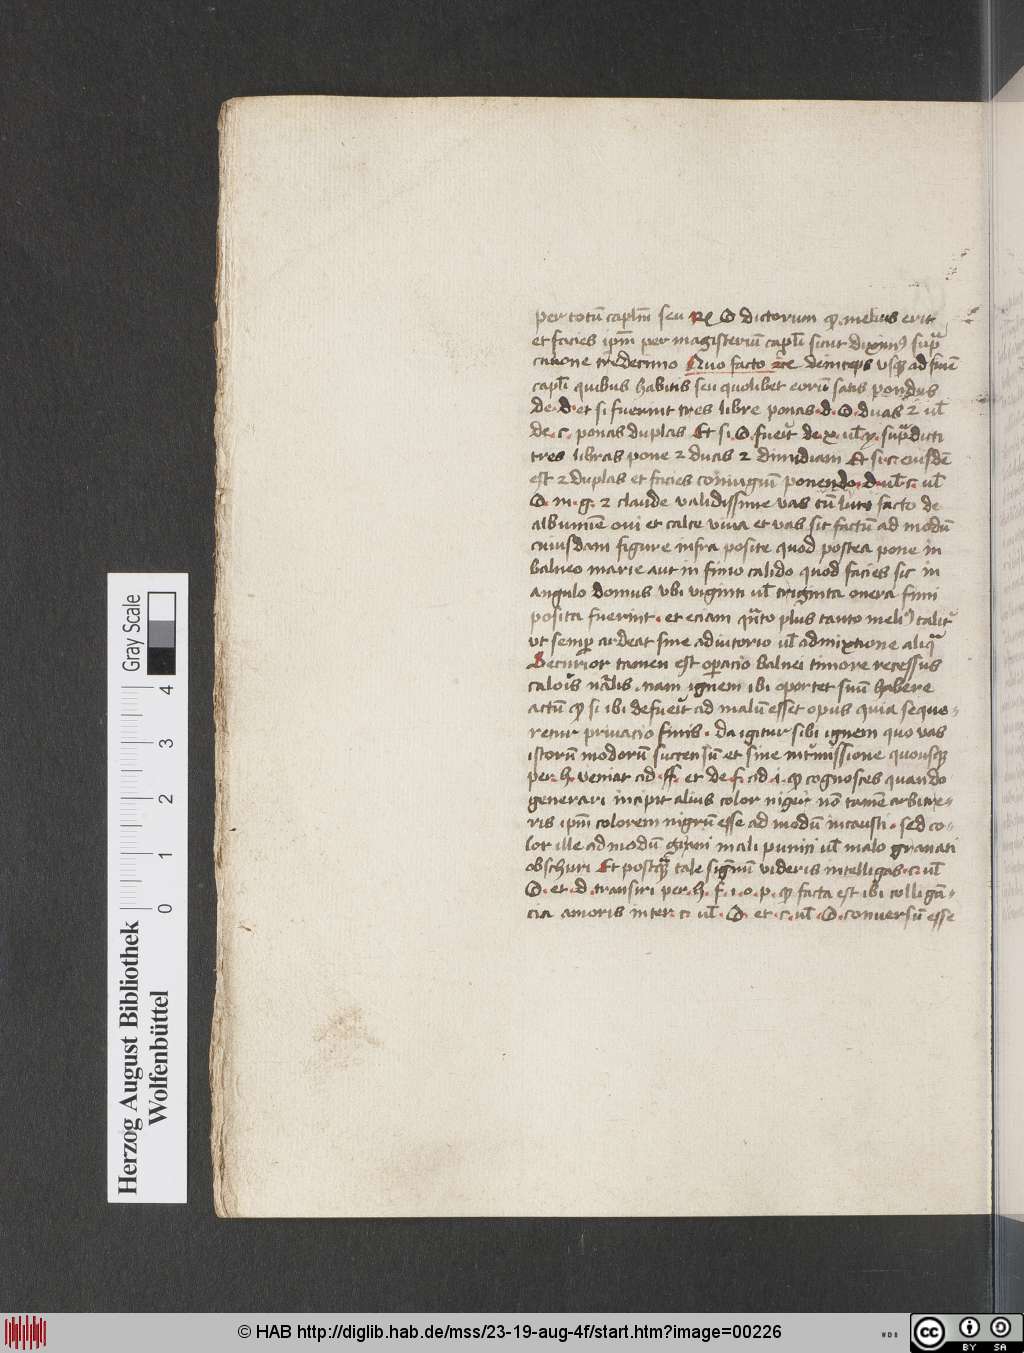 per totu᷃ caplm̅ seu Rx O dictorum ꝙ melius erit
et facies ipm̅ per magisteriu᷃ capl̅i sicut diximꝰ supᷓ
catione tredecimo Quo facto ꝛc̅e deinceps vsqꝫ ad fine᷃
capl̅i quibus habitis seu quolibet eoru᷃ satis pondus
de .d. et si fuerint tres libre ponas .d. O. duas ⁊ ul̅
de .c. ponas duplas Et si .O. fueꝛ̅t de .x. ul̅ .y. supᷓdicti
tres libras pone ⁊ duas ⁊ dimidiam Et si .c. eiusde᷃
est ⁊ duplas et facies coniugiu᷃ ponendo .d. ul̅ .c. ul̅
O. m. g. ⁊ claude validissime vas cu᷃ luto facto de
albumine oui et calce viua et vas sic factu᷃ ad modu᷃
cuiusdam figure infra posite quod postea pone in
balneo marie aut in fimo calido quod facies sic in
angulo domus vbi viginti ul̅ triginta onera fimi
posita fuerint . et eciam qᷓnto plus tanto meliꝰ taliter
vt semp̲ ardeat sine adiutorio ul̅ admixtione aliqᷓ
Securior tamen est op̲acio balnei timore recessus
caloris nᷓlis . nam ignem ibi oportet suu᷃ habere
actu᷃ ꝙ si ibi defueꝛ̅t ad malu᷃ esset opus quia seque-
retur priuacio finis . da igitur sibi ignem quo vas
istoru᷃ modoru᷃ succensu᷃ et sine int̓missione quousqꝫ
per .h. veniat cid .ff. et de .f. cid .i. ꝙ cognosces quando
generari incipit alius color niger no᷃ tame᷃ arbitre-
ris ipm̅ colorem nigru᷃ esse ad modu᷃ incausti . sed co-
lor ille ad modu᷃ grani mali punici ul̅ malo granati
obschuri Et postqᷓꝫ tale signu᷃ videris intelligas .c. ul̅
O. et .d. transiri per .h. f. i. o. p. ꝙ facta est ibi colliga᷃-
cia amoris inter .c. ul̅ .O. et .c. ul̅ .O. conuersu᷃ esse
Gray Scale
4
3
2
1
0
Herzog August Bibliothek
Wolfenbüttel
© HAB http://diglib.hab.de/mss/23-19-aug-4f/start.htm?image=00226
WDB
cc BY SA